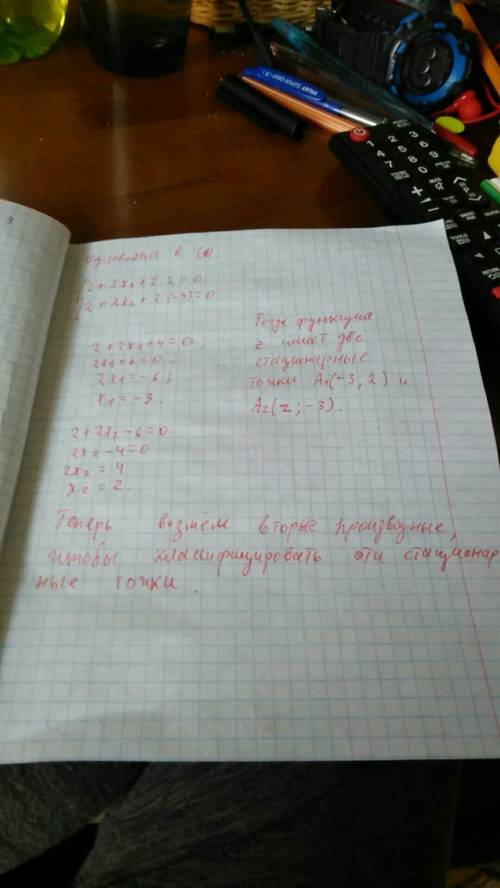 3
Подставляем в (*)
2 + 2x1 + 2·2 = 0
2 + 2x2 + 2·(-3) = 0
2 + 2x1 + 4 = 0;
2x1 + 6 = 0;
2x1 = -6;
x1 = -3.
2 + 2x2 - 6 = 0
2x2 - 4 = 0
2x2 = 4
x2 = 2.
Тогда функция
z имеет две
стационарные
точки A1(-3; 2) и
A2(2; -3).
Теперь возмём вторые производные,
чтобы классифицировать эти стационар
ные точки.